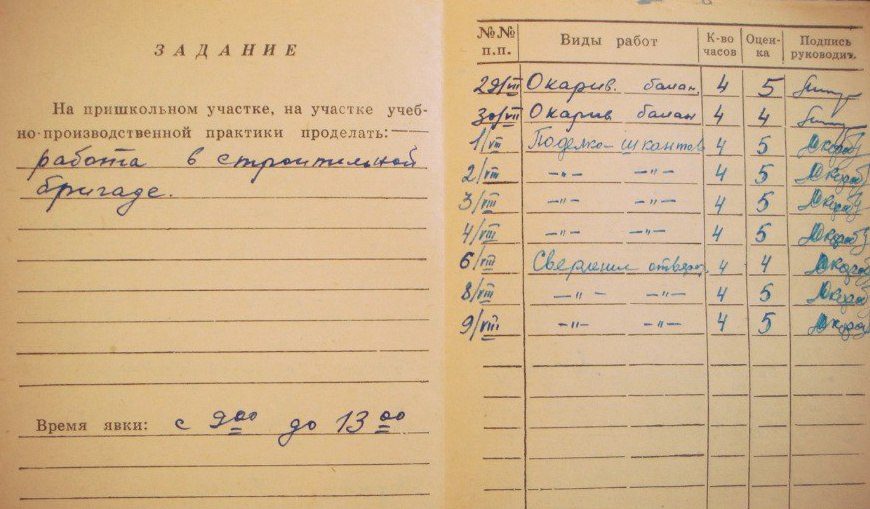 ЗАДАНИЕ
На пришкольном участке, на участке учеб-
но-производственной практики проделать:
работа в строительной
бригаде.
Время явки: с 9 00 до 13 00
№№ п.п. Виды работ К-во часов Оцен-ка Подпись руководит.
29/VII Окарив. балан. 4 5
30/VII Окарив балан 4 4
1/VIII Поделка шкантов 4 5
2/VIII —"— —"— 4 5
3/VIII —"— —"— 4 5
4/VIII —"— —"— 4 5
6/VIII Сверление отверст. 4 4
8/VIII —"— —"— 4 5
9/VIII —"— —"— 4 5